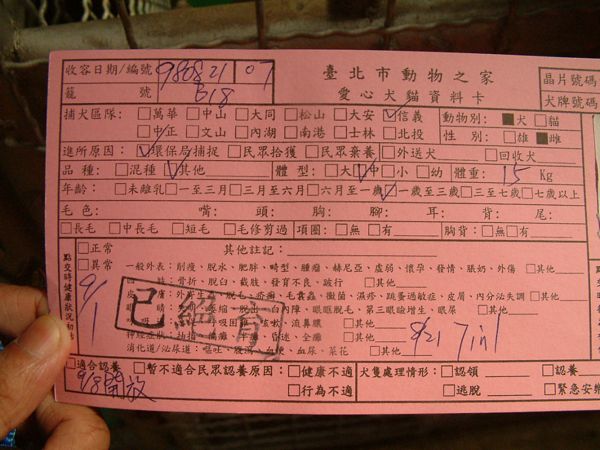 收容日期/編號 980821 07 臺北市動物之家 晶片號碼
籠 號 B18 愛心犬貓資料卡 犬牌號碼
捕犬區隊: □萬華 □中山 □大同 □松山 □大安 ☑信義 動物別: ■犬 □貓
□中正 □文山 □內湖 □南港 □士林 □北投 性 別: □雄 ■雌
進所原因: ☑環保局捕捉 □民眾拾獲 □民眾棄養 □外送犬 □回收犬
品 種: □混種 ☑其他 體 型: □大 ☑中 □小 □幼 體重: 15 Kg
年齡: □未離乳 □一至三月 □三月至六月 □六月至一歲 ☑一歲至三歲 □三至七歲 □七歲以上
毛色: 嘴: 頭: 胸: 腳: 耳: 背: 尾:
□長毛 □中長毛 □短毛 □毛修剪過 項圈: □無 □有 胸背: □無 □有
點交時健康狀況初估
□正常 其他註記:
□異常 一般外表: 削瘦、脫水、肥胖、畸型、腫瘤、赫尼亞、虛弱、懷孕、發情、脹奶、外傷 □其他
9/1 四 肢: 骨折、脫臼、截肢、發育不良、跛行 □其他
皮 膚: 外寄生蟲、脫毛、疥癬、毛囊蟲、黴菌、濕疹、跳蚤過敏症、皮屑、內分泌失調 □其他
眼 睛: 脫出、白內障、眼瞼脫毛、第三眼瞼增生、眼屎 □其他
呼吸困難、咳嗽、流鼻膿 □其他
神經症狀: 抽搐、癱瘓、半癱、昏迷、全癱 □其他
消化道/泌尿道: 嘔吐、腹瀉、血便、血尿、菜花 □其他
已絕育
8/21 7in1
□適合認養 □暫不適合民眾認養原因: □健康不適 犬隻處理情形: □認領 □認養
9/8開放 □行為不適 □逃脫 □緊急安樂